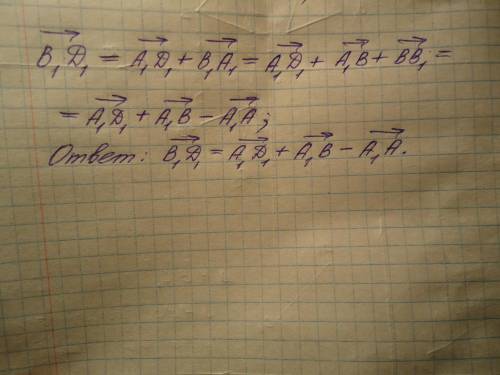 $\overrightarrow{B_1D_1} = \overrightarrow{A_1D_1} + \overrightarrow{B_1A_1} = \overrightarrow{A_1D_1} + \overrightarrow{A_1B} + \overrightarrow{BB_1} =$
$= \overrightarrow{A_1D_1} + \overrightarrow{A_1B} - \overrightarrow{A_1A};$
Ответ: $\overrightarrow{B_1D_1} = \overrightarrow{A_1D_1} + \overrightarrow{A_1B} - \overrightarrow{A_1A}.$